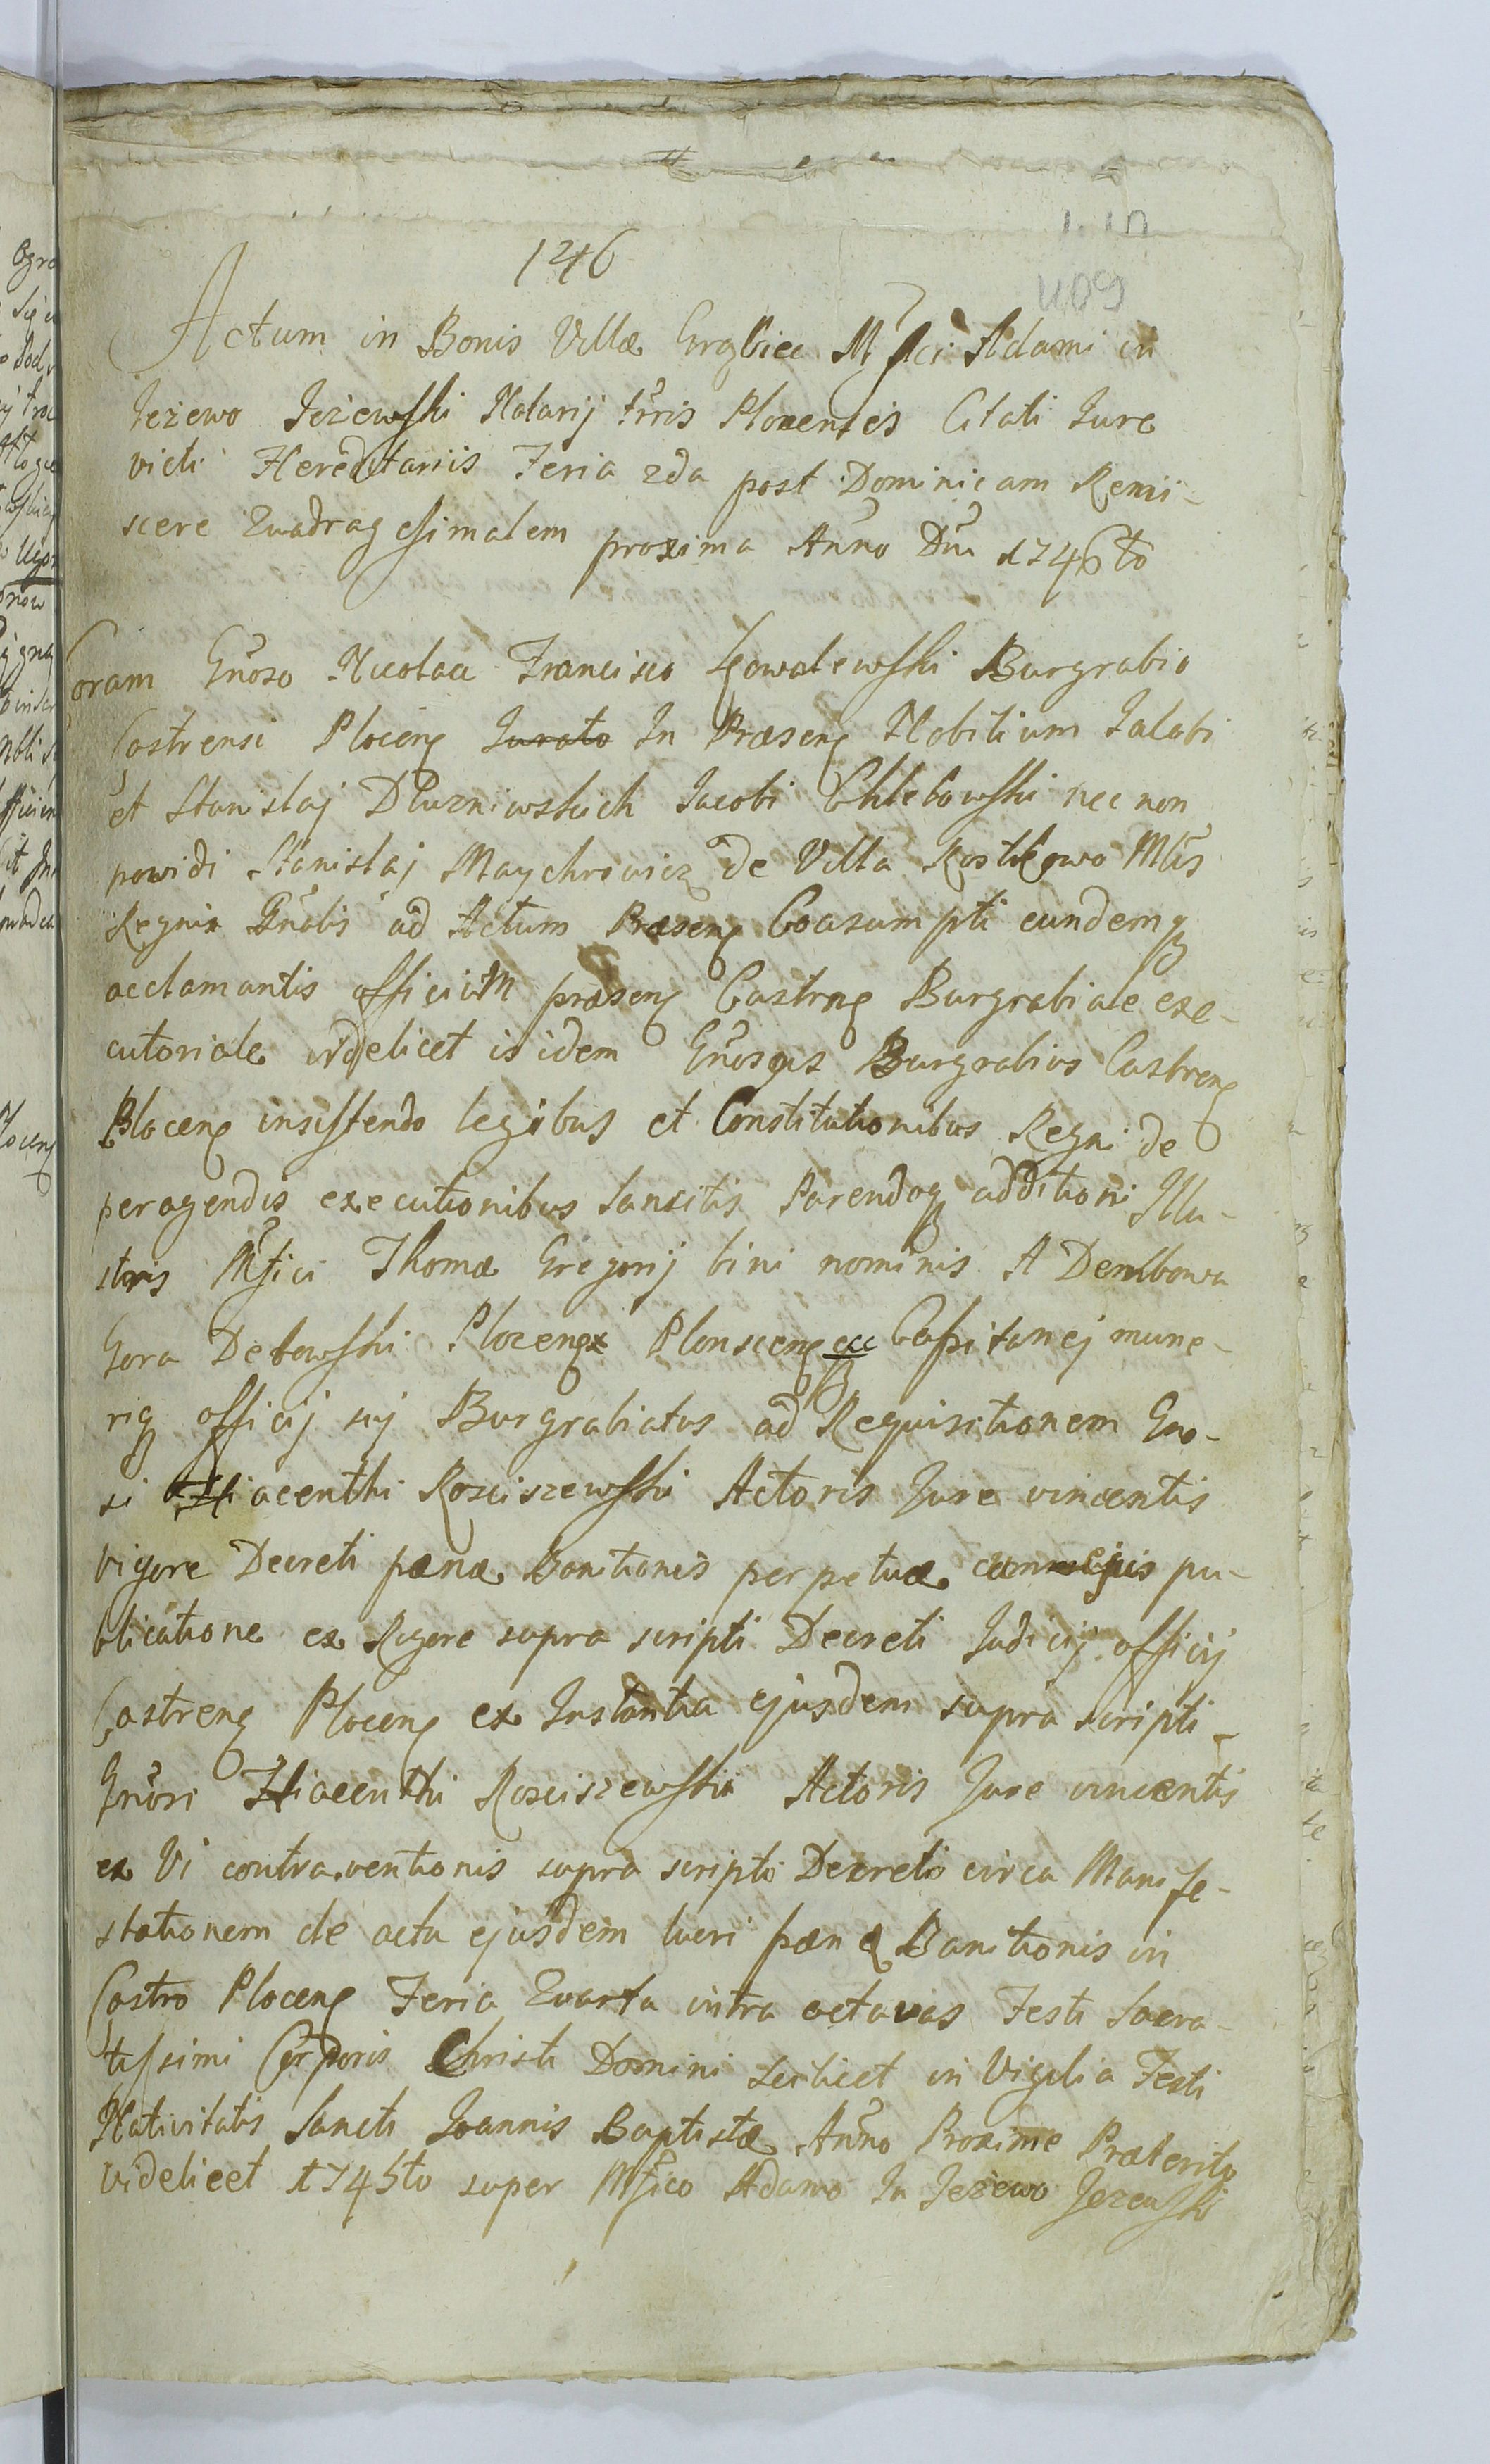 146
409
Actum in Bonis Villæ Grąbiec Mfici Adami in
Jeżewo Jeżewſki Notarij trris Plocensis Citati Jure
victi Hereditariis Feria 2da post Dominicam Remi-
scere Quadrag esimalem proxima Anno Dni 1746to
Coram Gnoso Nicolao Francisco Kowalewſki Burgrabio
Castrensi Plocenę Jurato In Præsenę Nobilium Jalobi
et Stanislaj Dluzniwskich Jacobi Chlebowſki nec non
powidi Stanislaj Maychrowicz de Villa Rostkowo Mlis
Regnis Gnalis ad Actum Præsenę Coasumpti eundemq
acclamantis officium præsenę Castrnę Burgrabiale exe-
cutoriale videlicet is idem Gnosus Burgrabius Castrenę
Plocenę insiſtendo legibus et Constitutionibus Regni de
peragendis executionibus Sancitis Parendoq additioni Illu-
stris Mfici Thomæ Gregorij bini nominis A Dembowa
Gora Debowſki Plocenę Plonscenę qcc Capitanej mune-
riq officij suj Burgrabiatus ad Requisitionem Gno-
si Hiacenthi Rosciszewſki Actoris Jure vincentis
vigore Decreti pænæ Banitionis perpetuæ ejus pu-
blicatione ex Rigore supra scripti Decreti Judicij officij
Castrenę Plocenę ex Instantia ejusdem supra scripti
Gnosi Hiacenthi Rosciszewſkii Actoris Jure vincentis
ex Vi contraventionis supra scripti Decreti circa Manife-
stationem de actu ejusdem lucri pænæ Banitionis in
Castro Plocenę Feria Quarta intra octavas Festi Sacra-
tiſsimi Corporis Christi Domini scilicet in Vigilia Festi
Nativitatis Sancti Joannis Baptistæ Anno Proxime Præterito
videlicet 1745to super Mfico Adamo In Jeżewo Jezewſki